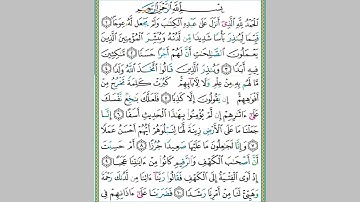 بِسْمِ ٱللَّهِ ٱلرَّحْمَٰنِ ٱلرَّحِيمِ
ٱلْحَمْدُ لِلَّهِ ٱلَّذِىٓ أَنزَلَ عَلَىٰ عَبْدِهِ ٱلْكِتَٰبَ وَلَمْ يَجْعَل لَّهُۥ عِوَجَا ۜ ﴿١﴾
قَيِّمًا لِّيُنذِرَ بَأْسًا شَدِيدًا مِّن لَّدُنْهُ وَيُبَشِّرَ ٱلْمُؤْمِنِينَ ٱلَّذِينَ
يَعْمَلُونَ ٱلصَّٰلِحَٰتِ أَنَّ لَهُمْ أَجْرًا حَسَنًا ﴿٢﴾ مَّٰكِثِينَ
فِيهِ أَبَدًا ﴿٣﴾ وَيُنذِرَ ٱلَّذِينَ قَالُوا۟ ٱتَّخَذَ ٱللَّهُ وَلَدًا ﴿٤﴾
مَّا لَهُم بِهِۦ مِنْ عِلْمٍ وَلَا لِـَٔابَآئِهِمْ ۚ كَبُرَتْ كَلِمَةً تَخْرُجُ مِنْ
أَفْوَٰهِهِمْ ۚ إِن يَقُولُونَ إِلَّا كَذِبًا ﴿٥﴾ فَلَعَلَّكَ بَٰخِعٌ نَّفْسَكَ
عَلَىٰٓ ءَاثَٰرِهِمْ إِن لَّمْ يُؤْمِنُوا۟ بِهَٰذَا ٱلْحَدِيثِ أَسَفًا ﴿٦﴾ إِنَّا
جَعَلْنَا مَا عَلَى ٱلْأَرْضِ زِينَةً لَّهَا لِنَبْلُوَهُمْ أَيُّهُمْ أَحْسَنُ عَمَلًا
﴿٧﴾ وَإِنَّا لَجَٰعِلُونَ مَا عَلَيْهَا صَعِيدًا جُرُزًا ﴿٨﴾ أَمْ حَسِبْتَ
أَنَّ أَصْحَٰبَ ٱلْكَهْفِ وَٱلرَّقِيمِ كَانُوا۟ مِنْ ءَايَٰتِنَا عَجَبًا ﴿٩﴾
إِذْ أَوَى ٱلْفِتْيَةُ إِلَى ٱلْكَهْفِ فَقَالُوا۟ رَبَّنَآ ءَاتِنَا مِن لَّدُنكَ رَحْمَةً
وَهَيِّئْ لَنَا مِنْ أَمْرِنَا رَشَدًا ﴿١٠﴾ فَضَرَبْنَا عَلَىٰٓ ءَاذَانِهِمْ فِى